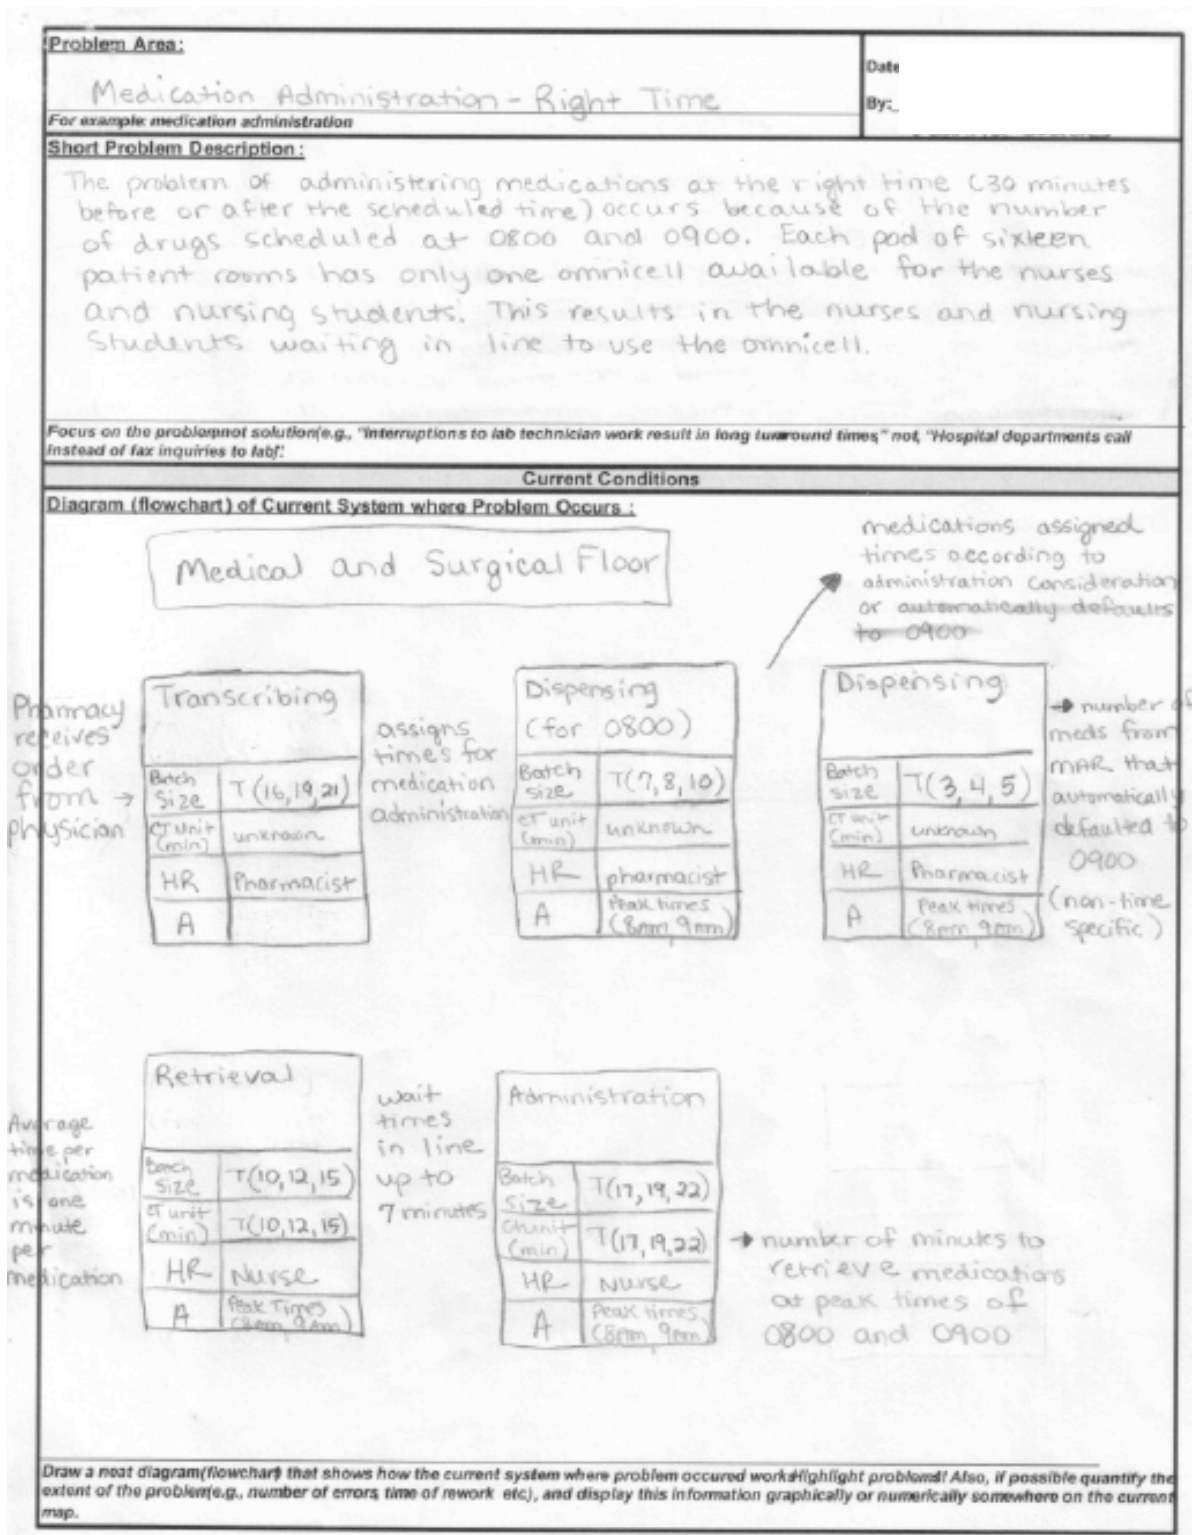 Problem Area:
Medication Administration - Right Time
For example: medication administration
Date
By:
Short Problem Description:
The problem of administering medications at the right time (30 minutes
before or after the scheduled time) occurs because of the number
of drugs scheduled at 0800 and 0900. Each pod of sixteen
patient rooms has only one omnicell available for the nurses
and nursing students. This results in the nurses and nursing
Students waiting in line to use the omnicell.
Focus on the problem not solution (e.g., "Interruptions to lab technician work result in long turnaround times," not, "Hospital departments call
instead of fax inquiries to lab".
Current Conditions
Diagram (flowchart) of Current System where Problem Occurs :
Medical and Surgical Floor
medications assigned
times according to
administration consideration
or automatically defaults
to 0900
Pharmacy
receives
order
from →
physician
Transcribing
Batch Size T(16,19,21)
CT unit (min) unknown
HR Pharmacist
A
assigns
times for
medication
administration
Dispensing
(for 0800)
Batch size T(7,8,10)
CT unit (min) unknown
HR pharmacist
A Peak times (8am, 9am)
Dispensing
Batch size T(3,4,5)
CT unit (min) unknown
HR Pharmacist
A Peak times (8am, 9am)
→ number of
meds from
MAR that
automatically
defaulted to
0900
(non-time
specific)
Average
time per
medication
is one
minute
per
medication
Retrieval
Batch Size T(10,12,15)
CT unit (min) T(10,12,15)
HR Nurse
A Peak Times (8am, 9am)
wait
times
in line
up to
7 minutes
Administration
Batch Size T(17,19,22)
CT unit (min) T(17,19,22)
HR Nurse
A Peak times (8am, 9am)
→ number of minutes to
retrieve medications
at peak times of
0800 and 0900
Draw a neat diagram (flowchart) that shows how the current system where problem occured works. Highlight problems! Also, if possible quantify the
extent of the problem (e.g., number of errors, time of rework etc), and display this information graphically or numerically somewhere on the current
map.